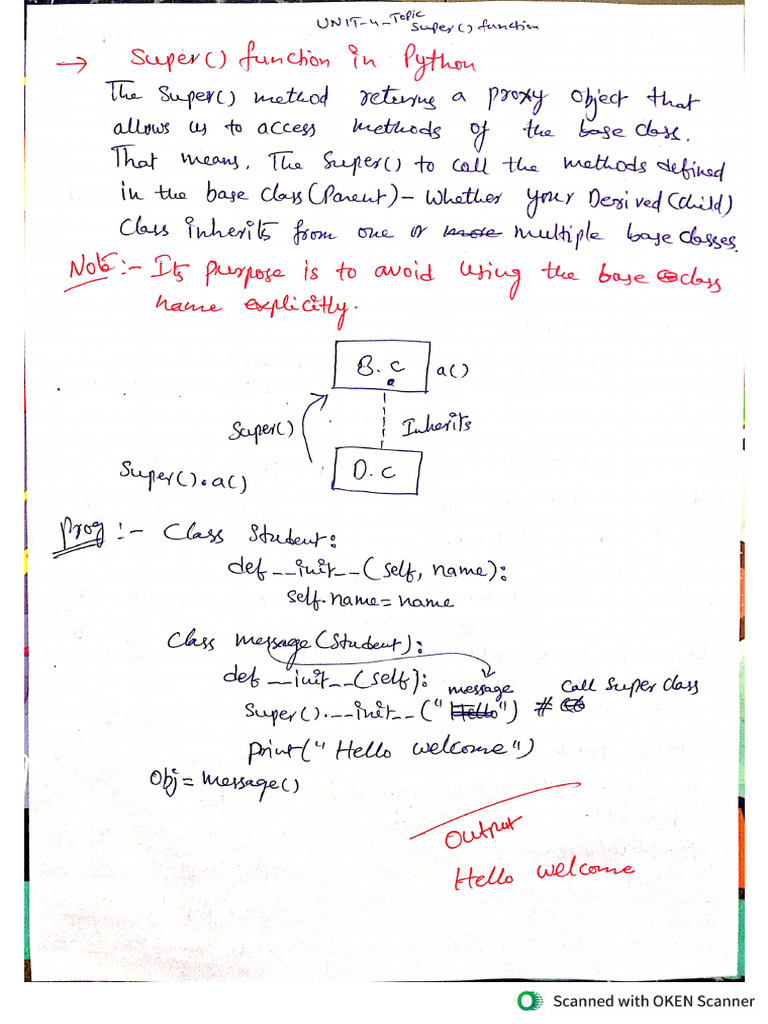 UNIT-4-Topic
Super() function
→ Super() function in Python
The Super() method returns a proxy object that
allows us to access methods of the base class.
That means, The Super() to call the methods defined
in the base class(Parent)- Whether your Derived(child)
Class inherits from one or more multiple base classes.
Note:- Its purpose is to avoid using the base class
name explicitly.
B.c
a
a()
Super()
Inherits
Super().a()
D.c
Prog:- Class Student:
def __init__(self, name):
self.name=name
Class message(Student):
def __init__(self):
message
Call Super class
Super().__init__("Hello") #
print("Hello welcome")
Obj=message()
Output
Hello welcome
Scanned with OKEN Scanner